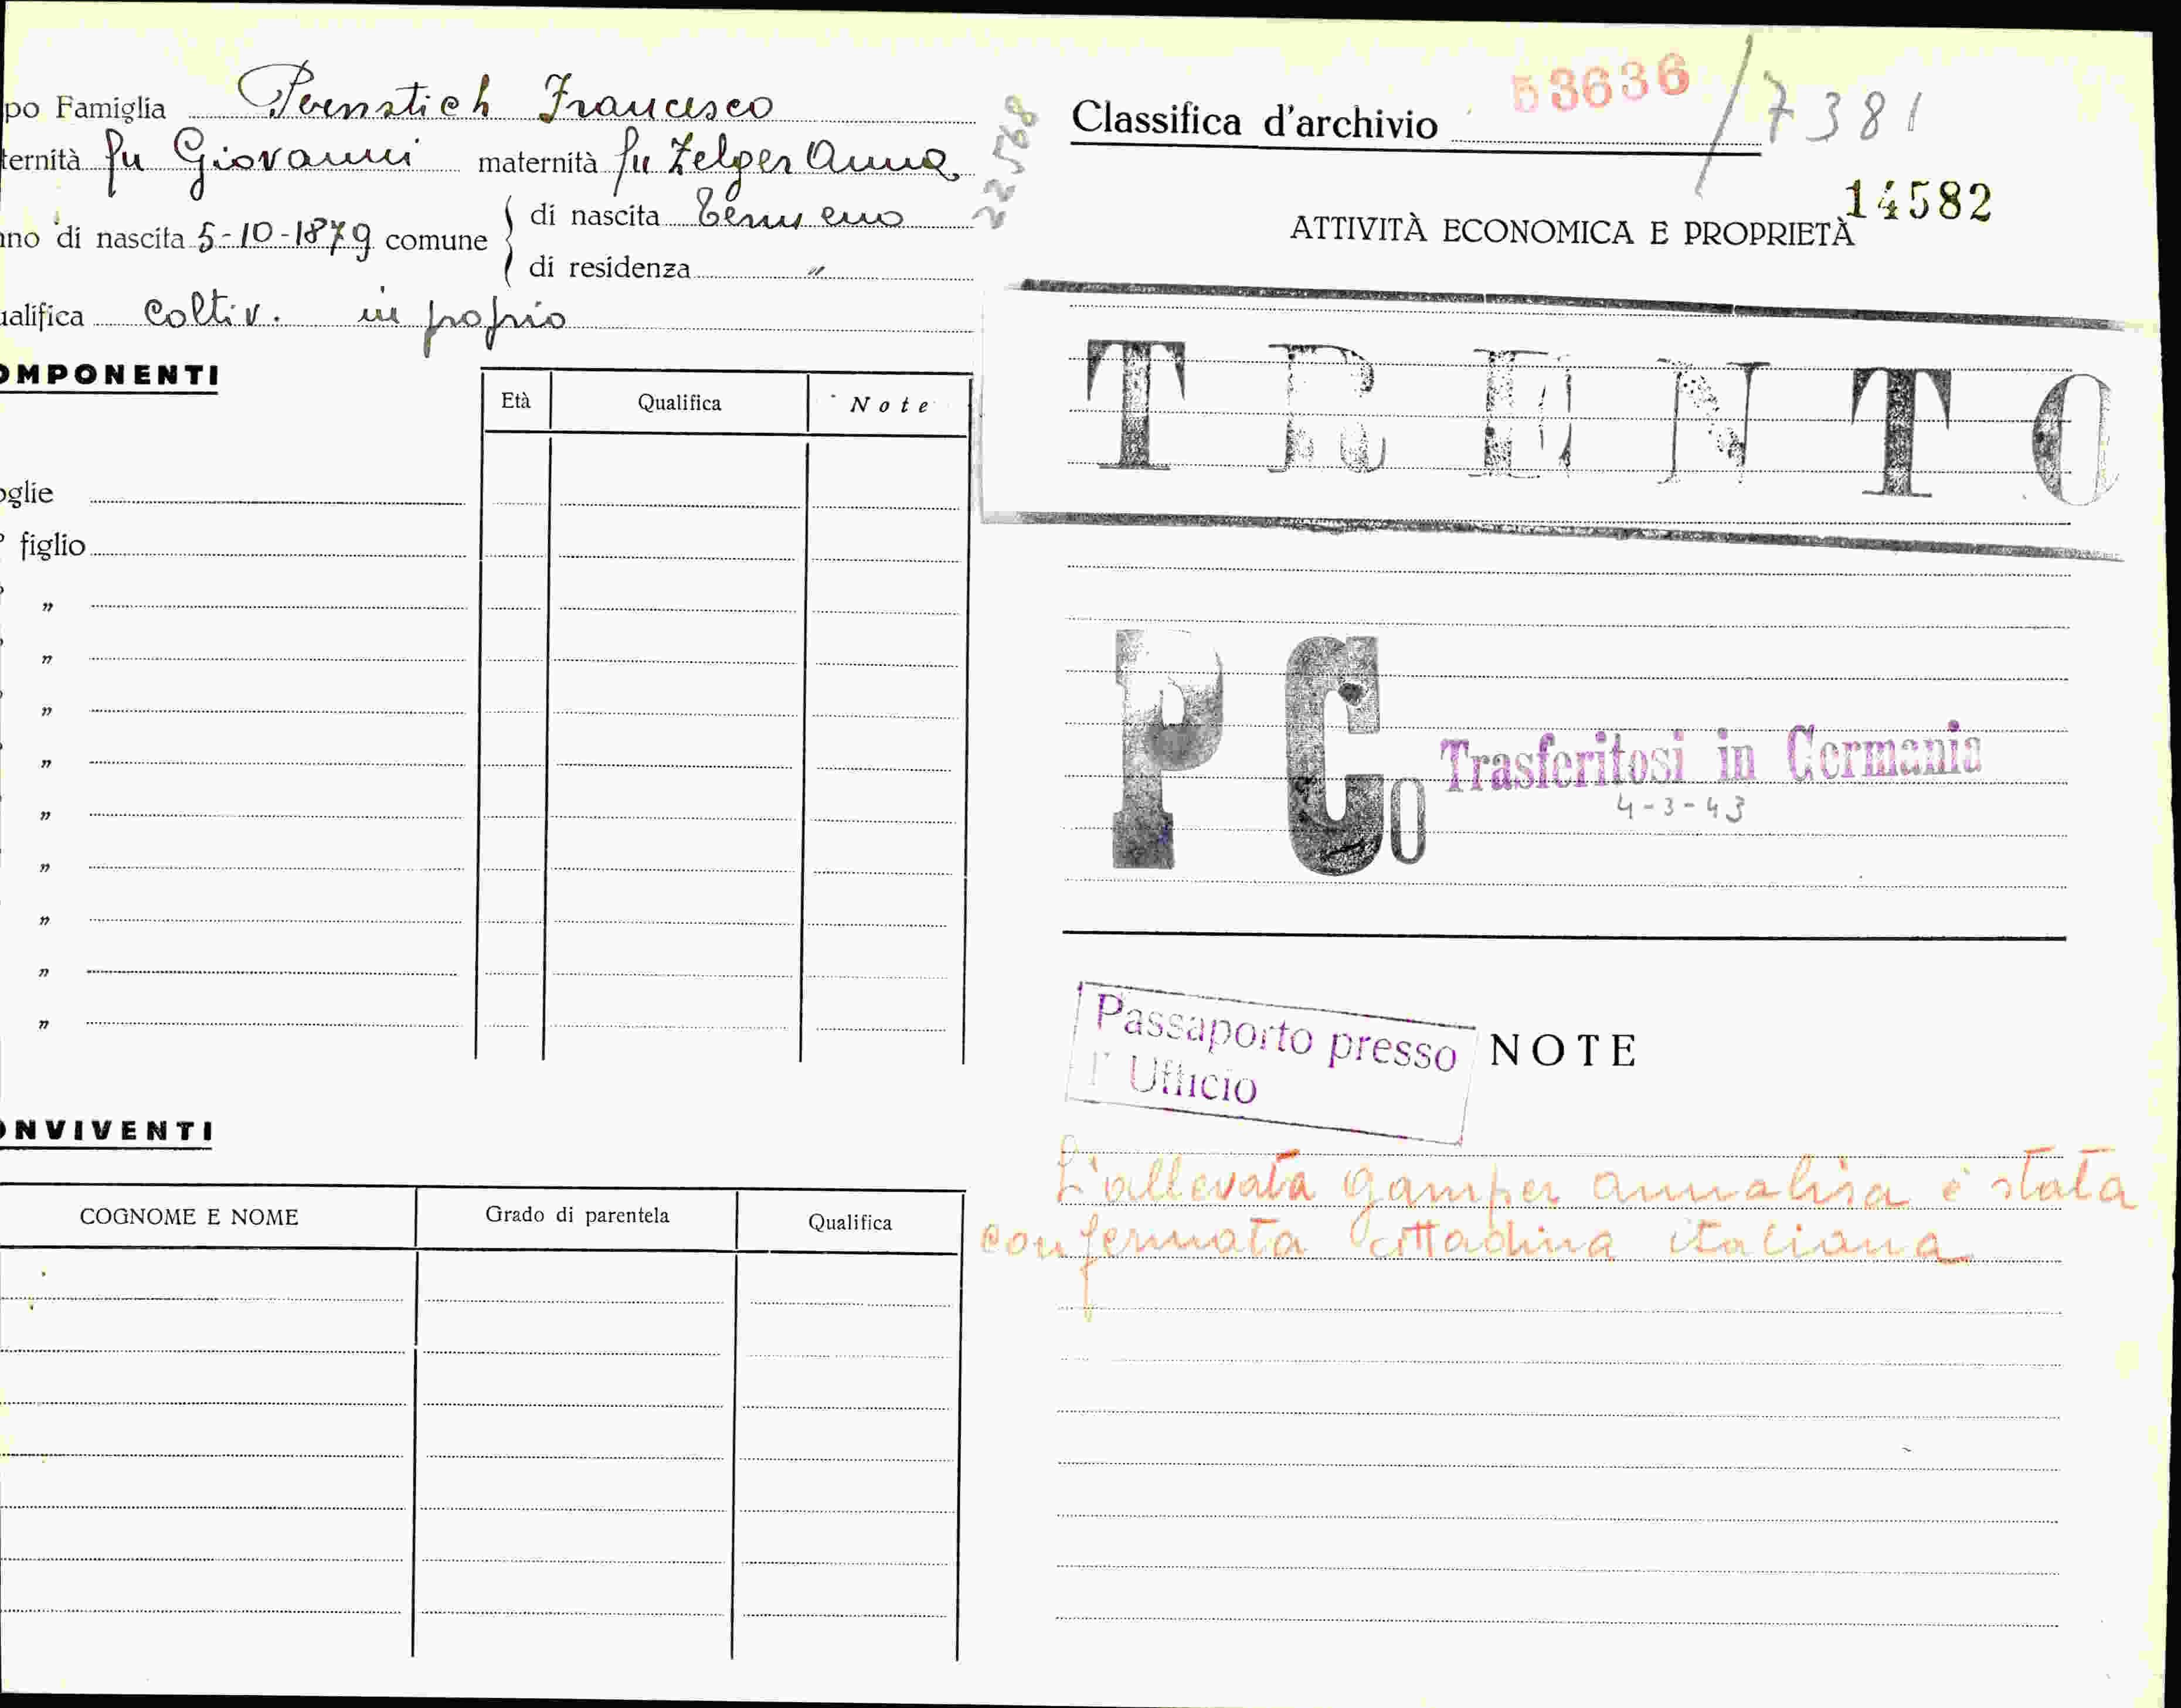 po Famiglia Pernstich Francesco
ternità fu Giovanni maternità fu Zelger Anna
nno di nascita 5-10-1879 comune di nascita Termeno
di residenza "
ualifica coltiv. in proprio
OMPONENTI
Età Qualifica Note
oglie
° figlio
"
"
"
"
"
"
"
"
"
ONVIVENTI
COGNOME E NOME Grado di parentela Qualifica
22568
Classifica d'archivio 53636 / 7381
14582
ATTIVITÀ ECONOMICA E PROPRIETÀ
TRENTO
PCo Trasferitosi in Germania
4-3-43
Passaporto presso
l'Ufficio
NOTE
L'allevata Gamper Annalisa è stata
confermata cittadina italiana